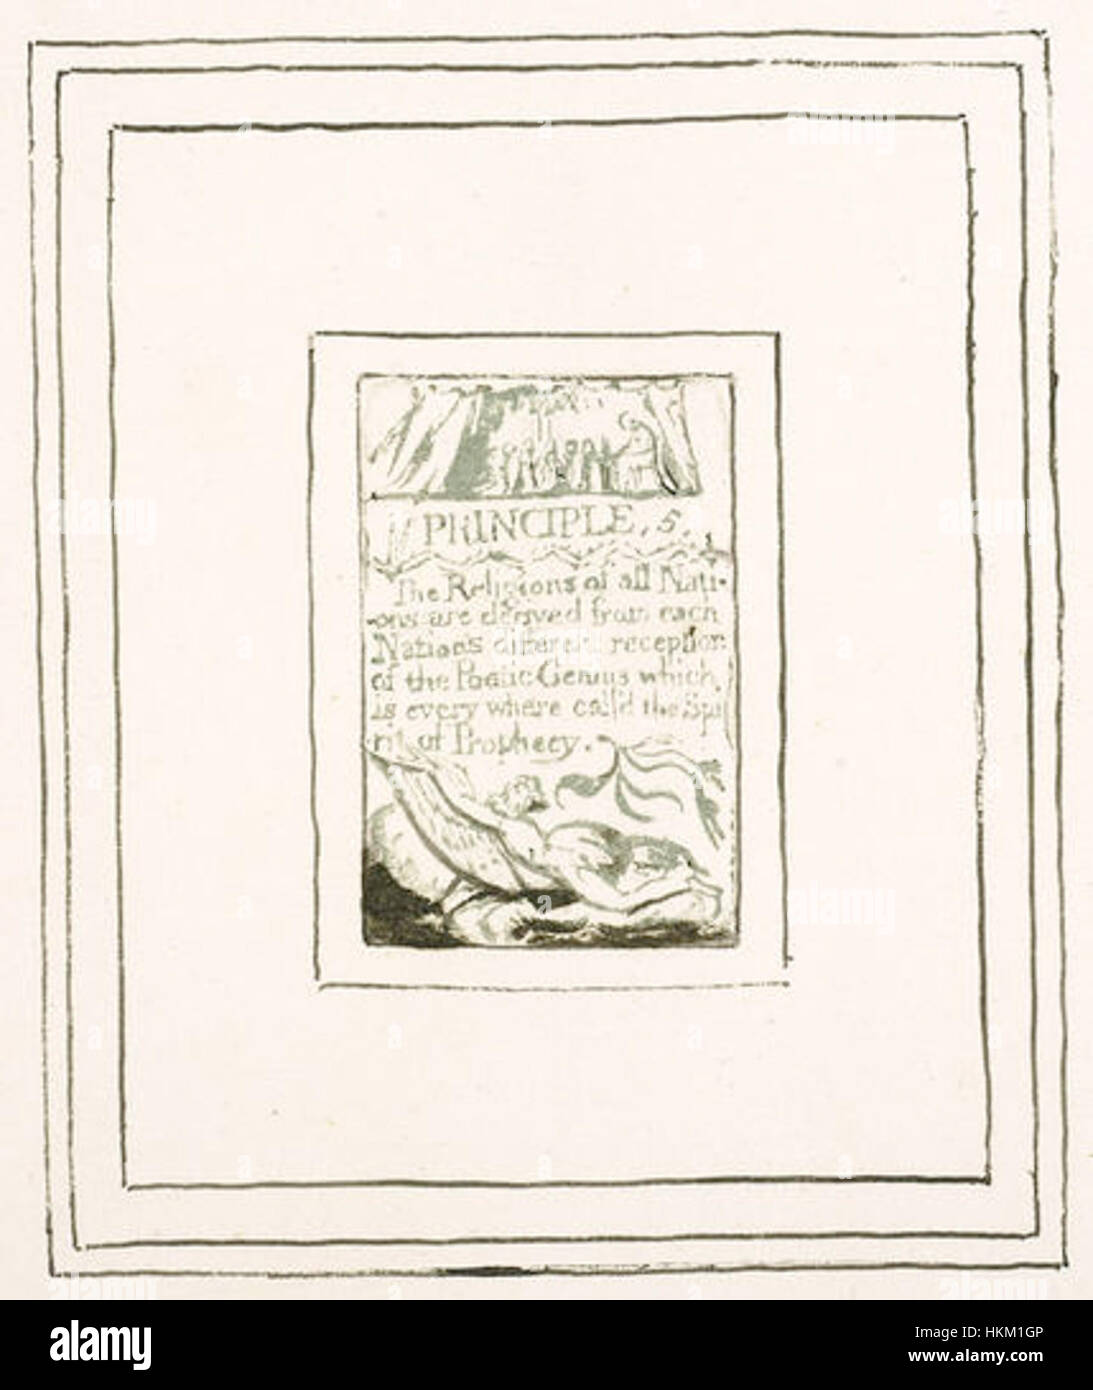 PRINCIPLE. 5.
The Religions of all Nati-
-ons are derived from each
Nations different reception
of the Poetic Genius which
is every where call'd the Spi
rit of Prophecy.
alamy
Image ID: HKM1GP
www.alamy.com